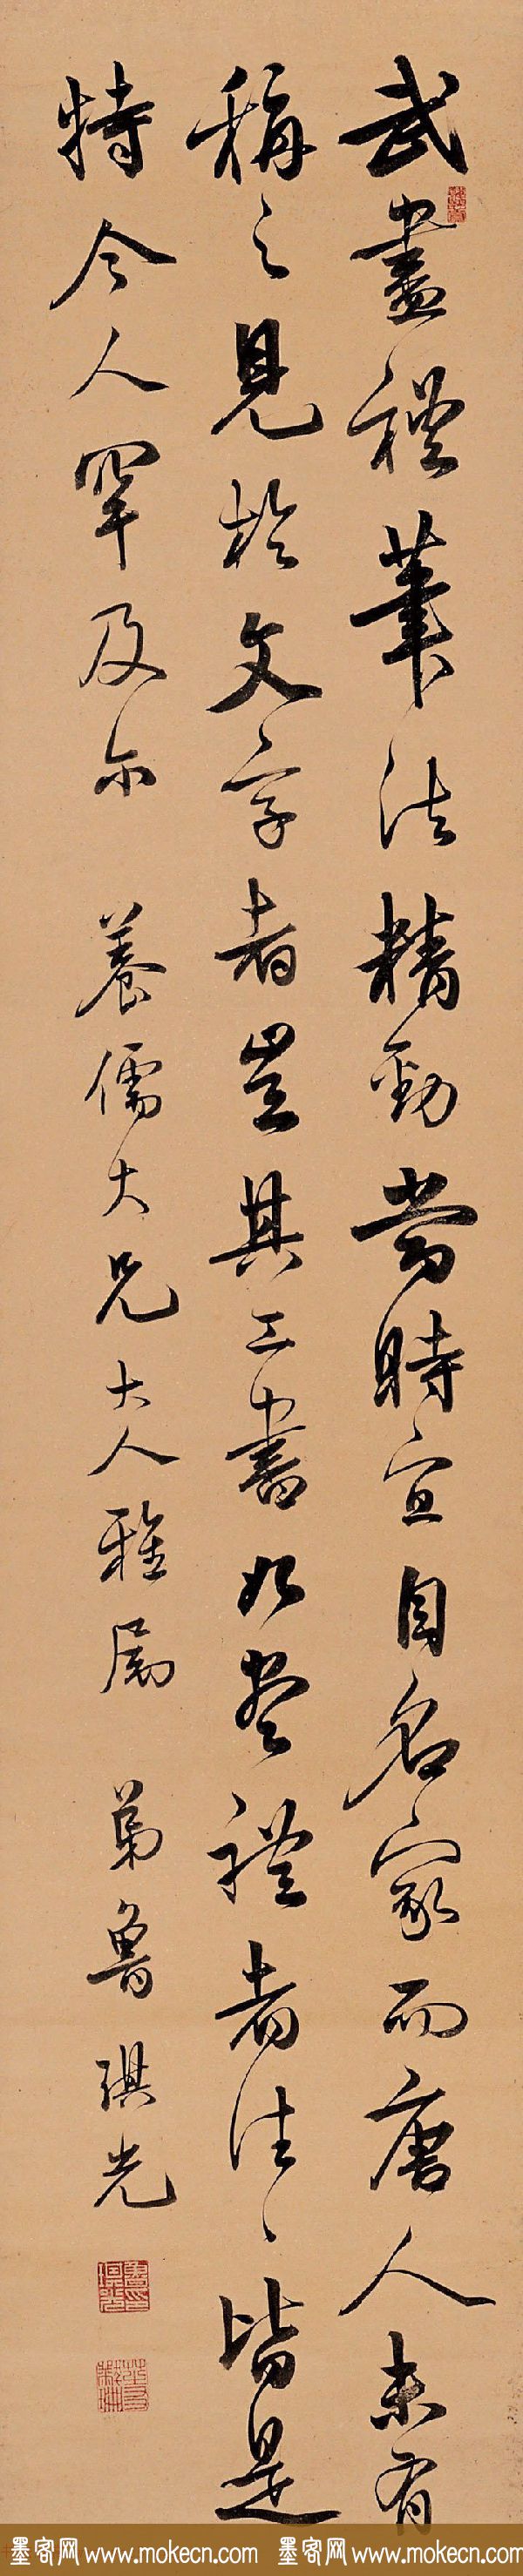 武盡禮筆法精勁當時宜自名家而唐人未有
稱之見於文字者豈其工書如盡禮者往〻皆是
特今人罕及尔 養儒大兄大人雅屬 弟魯琪光
墨客网 www.mokecn.com 墨客网 www.mokecn.com